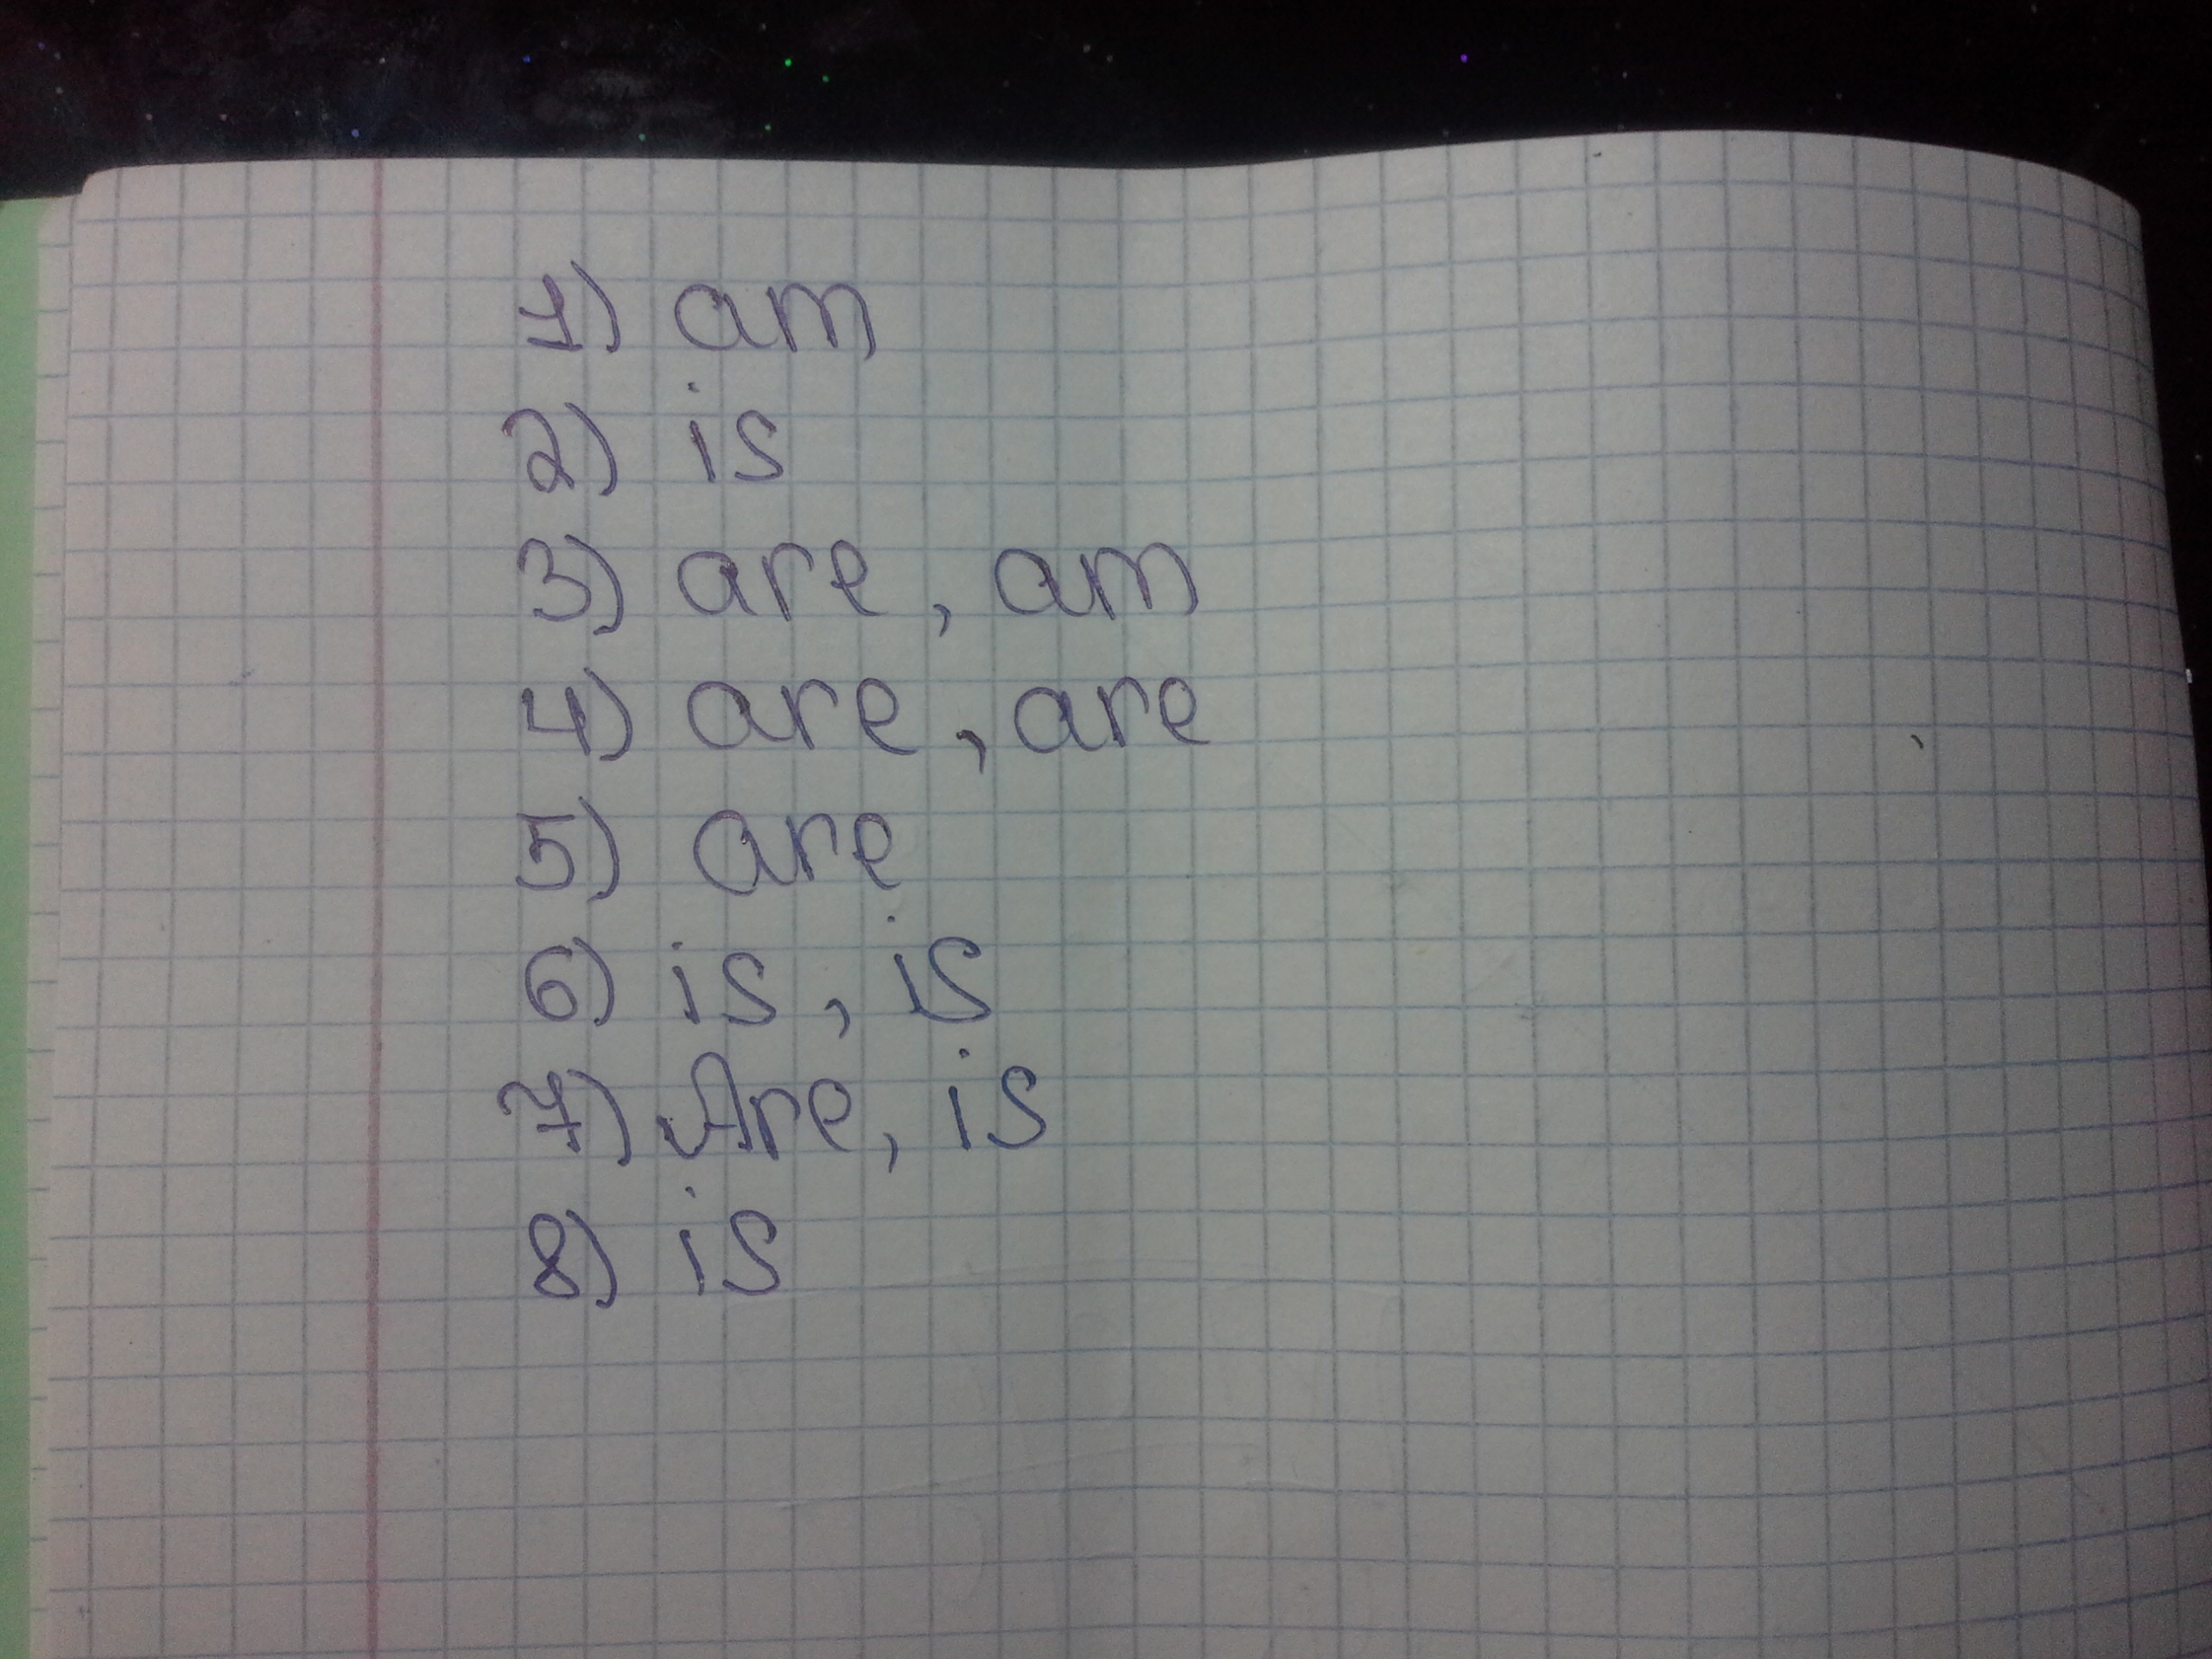 1) am
2) is
3) are, am
4) are, are
5) are
6) is, is
7) Are, is
8) is